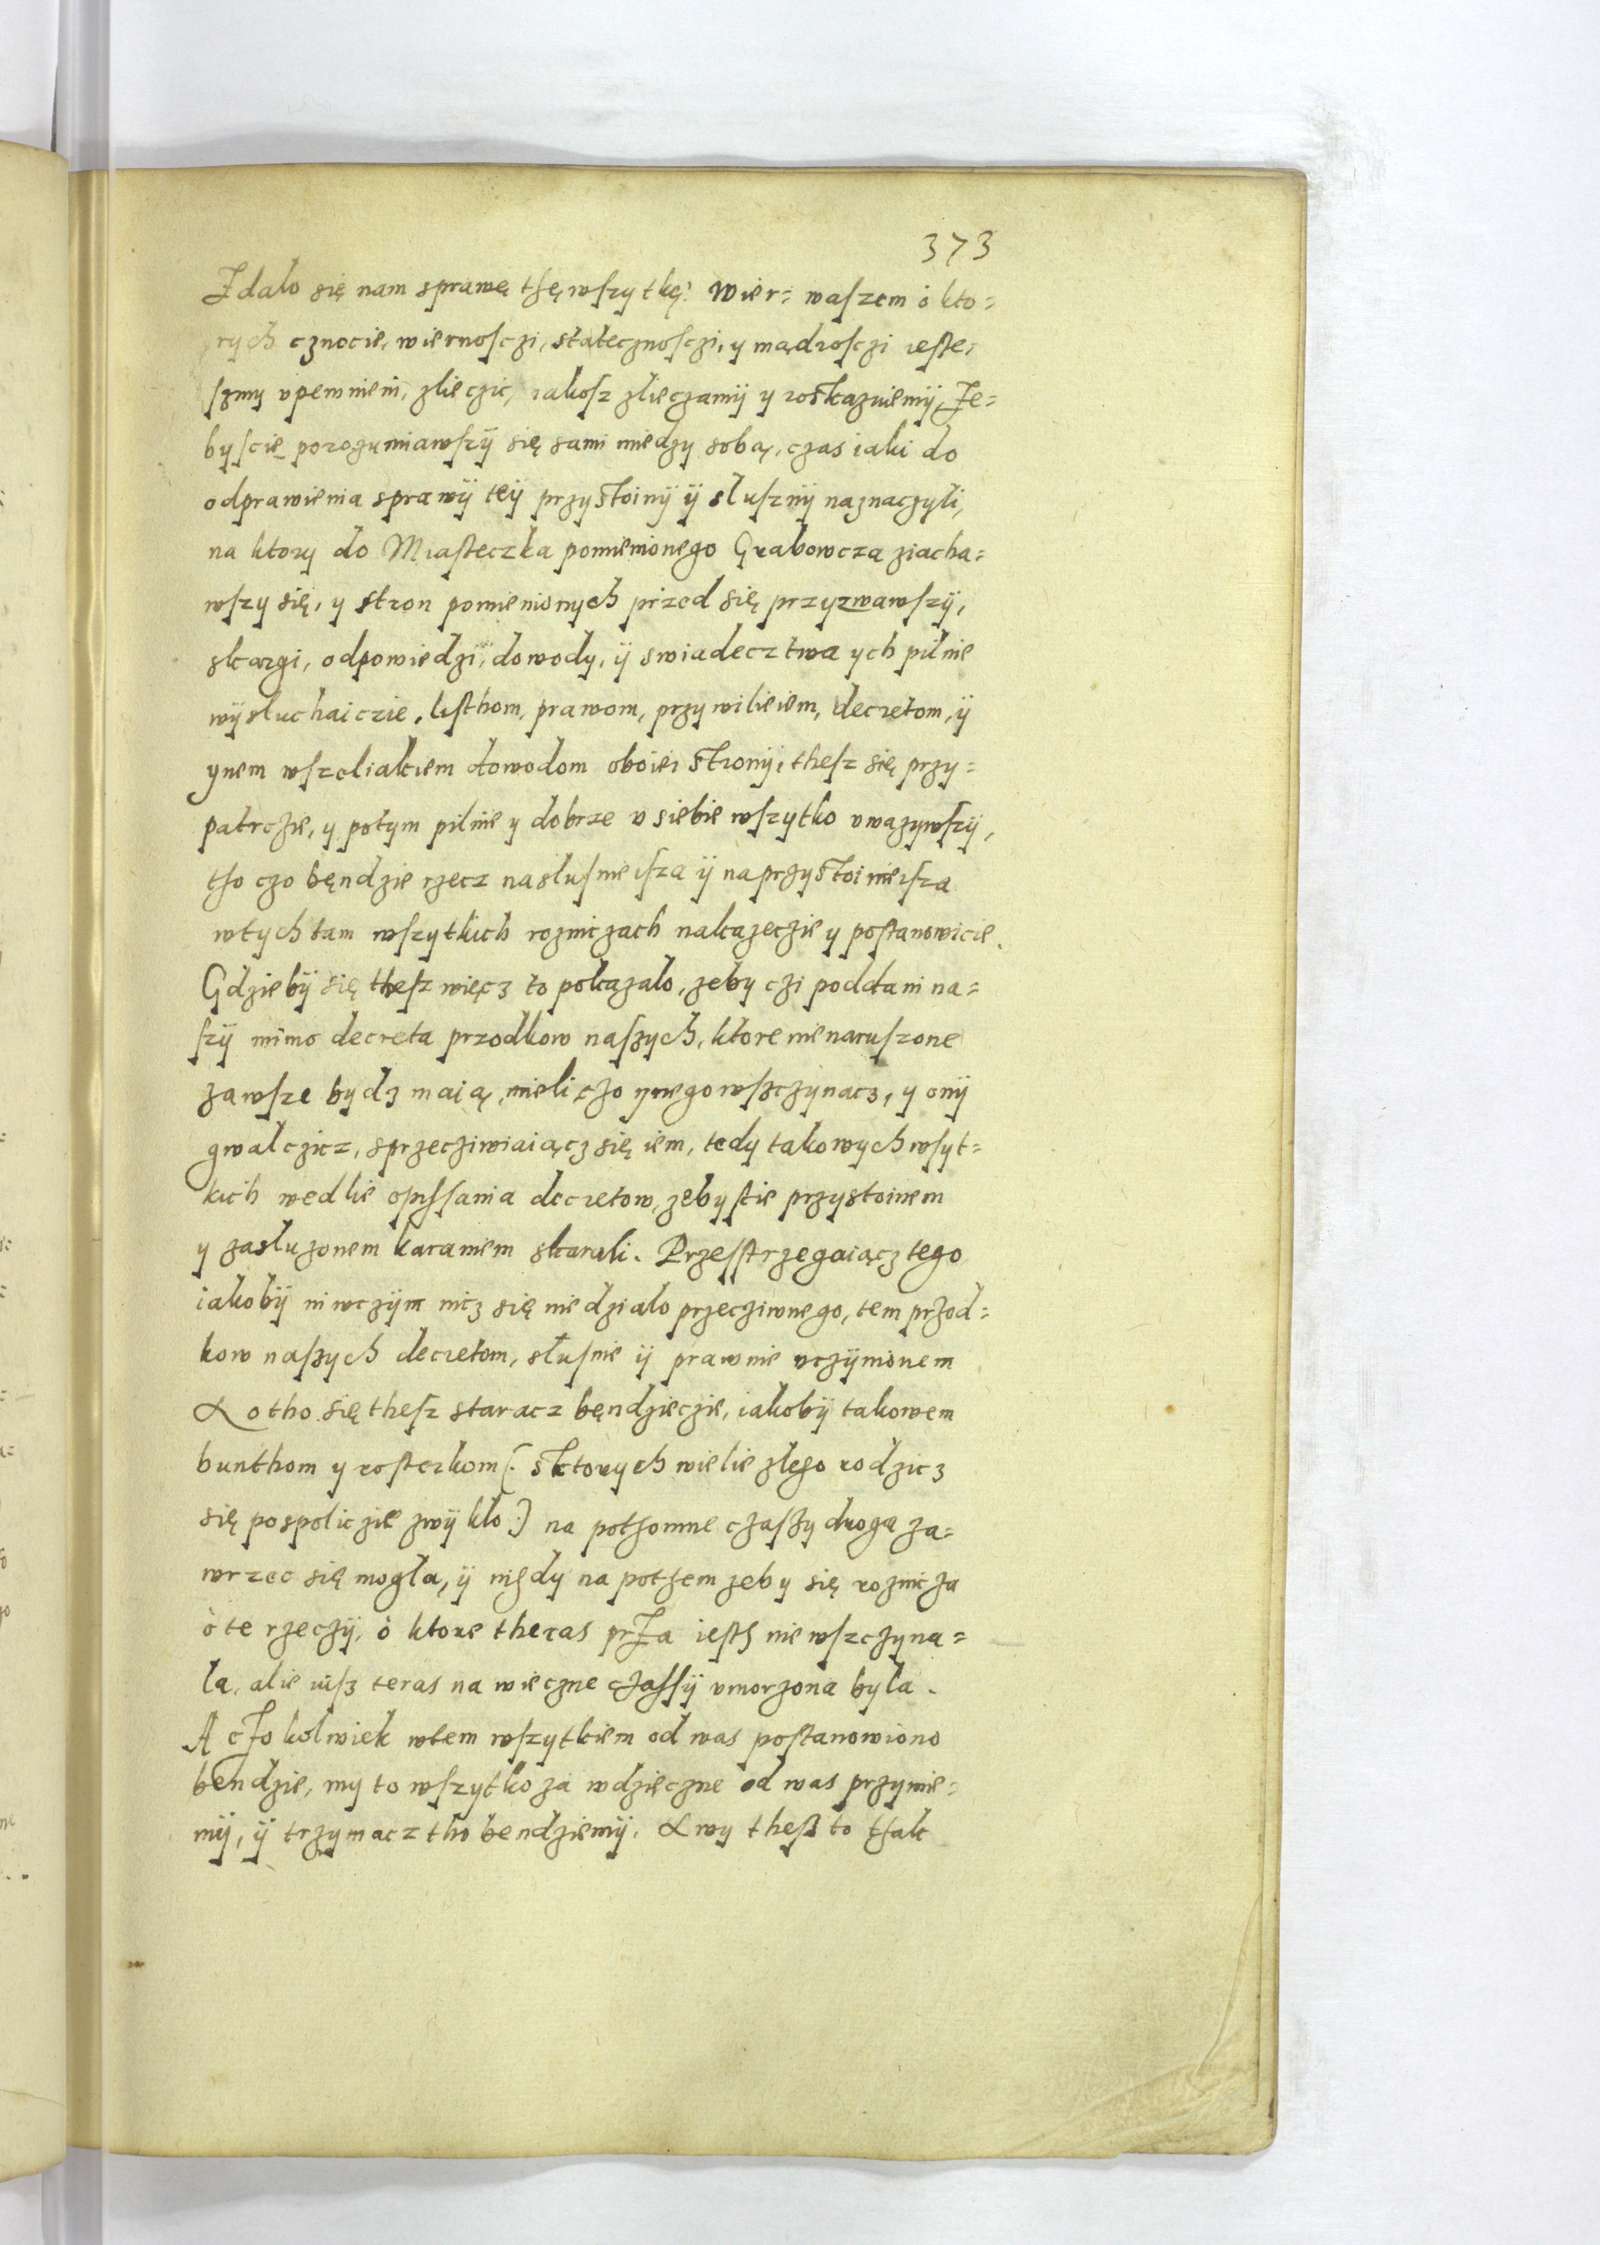 373
Zdalo się nam sprawę thę wſzytkę. Wier= waſzem ò kto=
rych cznocie, wiernoſczi, statecznoſczi, y mądroſczi ieste=
ſzmy vpewnieni, zlieczic, iakosz zlieczamÿ y roskazuiemÿ, Ze=
byſcie porozumiawſzÿ się sami miedzy sobą, czas iaki do
odprawienia sprawÿ teÿ przystoinÿ ÿ sluſznÿ naznaczyli,
na ktory do Miasteczka pomienionego Grabowcza ziacha=
wſzy się, y stron pomienionych przed się przyzwawſzÿ,
skargi, odpowiedzi, dowody, ÿ swiadecztwa ych pilnie
wÿsluchaiczie, listhom, prawom, przywilieiem, decretom, ÿ
ynem wſzeliakiem dowodom oboiei stronÿ, theſz się przy=
patrczie, y potym pilnie y dobrze v siebie wſzytko vwazywſzÿ,
tho czo bęndzie rzecz nasluſnieiſza ÿ naprzystoinieiſza
wtych tam wſzytkich rozniczach nakazeczie y postanowicie.
Gdziebÿ się theſz więcz to pokazalo, zeby czi poddani na=
ſzÿ mimo decreta przodkow naſzych, ktore nienaruſzone
zawſze bydz maią, mieli czo ynnego wſzczynacz, y onÿ
gwalczicz, sprzecziwiaiącz się iem, tedy takowych wſyt=
kich wedlie opiſſania decretow, zebyscie przystoinem
y zasluzonem karaniem skarali. Przeſtrzegaiącz tego
iakobÿ ni wczÿm nicz się nie dzialo przecziwnego, tem przod=
kow naſzych decretom, sluſnie ÿ prawnie vczÿnionem
A otho się theſz staracz bęndzieczie, iakobÿ takowem
bunthom y rosterkom (: sktorych wielie zlego rodzicz
się pospoliczie zwÿklo :) na pothomne czaſzy droga za=
wrzec się mogla, ÿ nigdy na pothem zeby się roznicza
ò te rzeczÿ, ò ktore theras prza iesth nie wſzczyna=
la, alie iuſz teras na wieczne czaſſÿ vmorzona byla.
A czokolwiek wtem wſzytkiem od was postanowiono
bendzie, my to wſzytko za wdzieczne od was przymie=
mÿ, ÿ trzymacz tho bendziemÿ. A wy theſz to thak